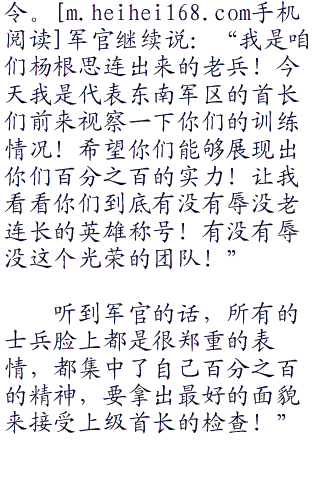 令。[m.heihei168.com手机
阅读]军官继续说：“我是咱
们杨根思连出来的老兵！今
天我是代表东南军区的首长
们前来视察一下你们的训练
情况！希望你们能够展现出
你们百分之百的实力！让我
看看你们到底有没有辱没老
连长的英雄称号！有没有辱
没这个光荣的团队！”
听到军官的话，所有的
士兵脸上都是很郑重的表
情，都集中了自己百分之百
的精神，要拿出最好的面貌
来接受上级首长的检查！”